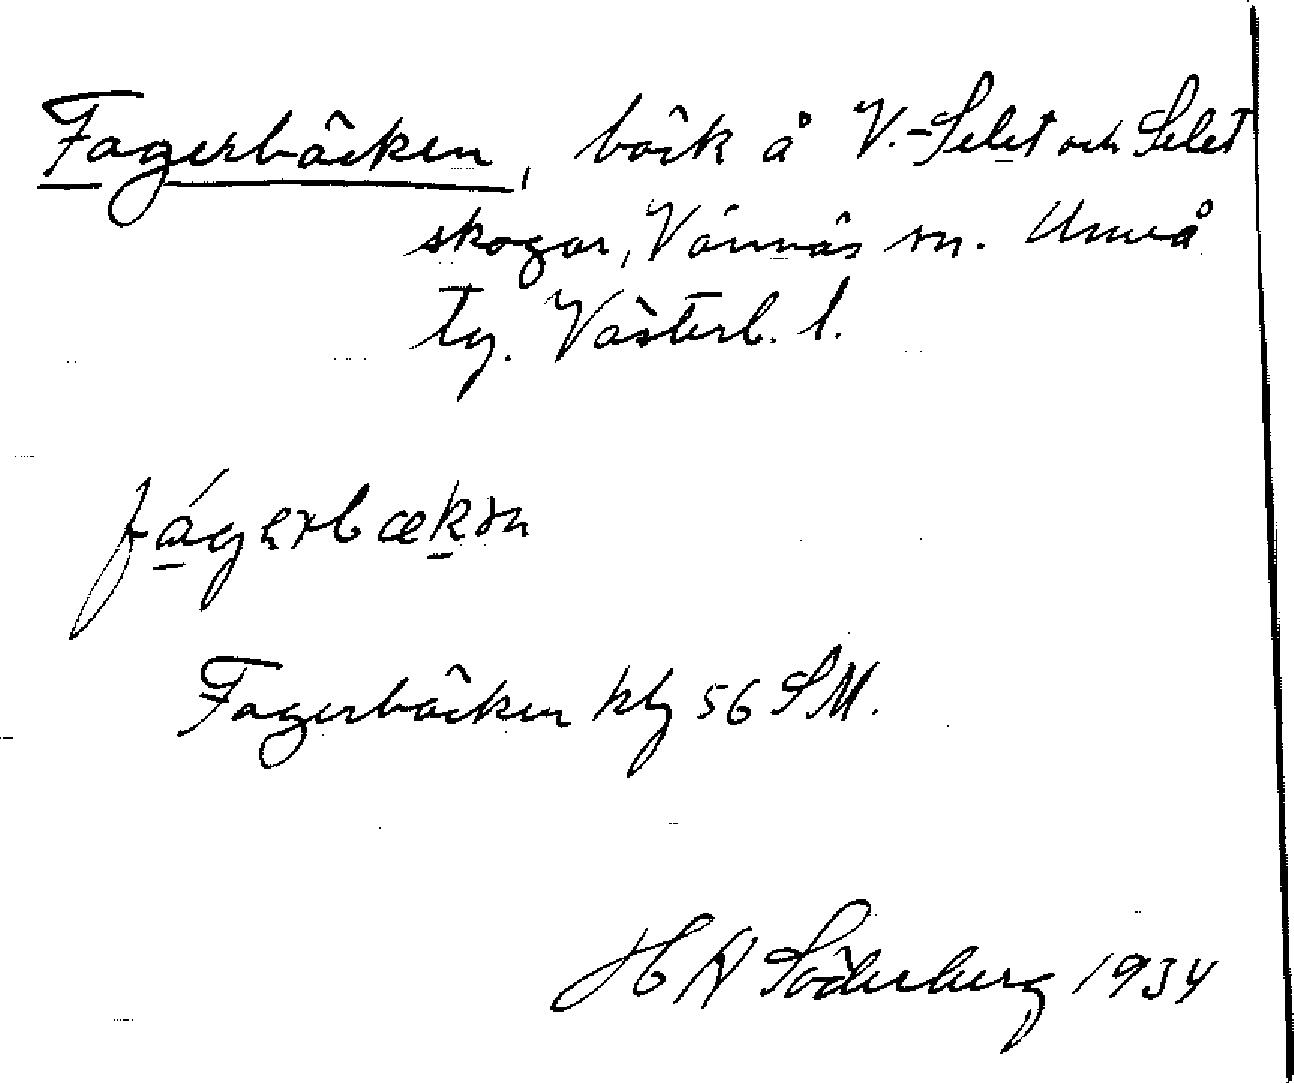 Fagerbäcken, bäck å V.-Selet och Selet
skogar, Vännäs sn. Umeå
tg. Västerb. l.
fágerbækən
Fagerbäcken hbg 56 SM.
H N Söderberg 1934